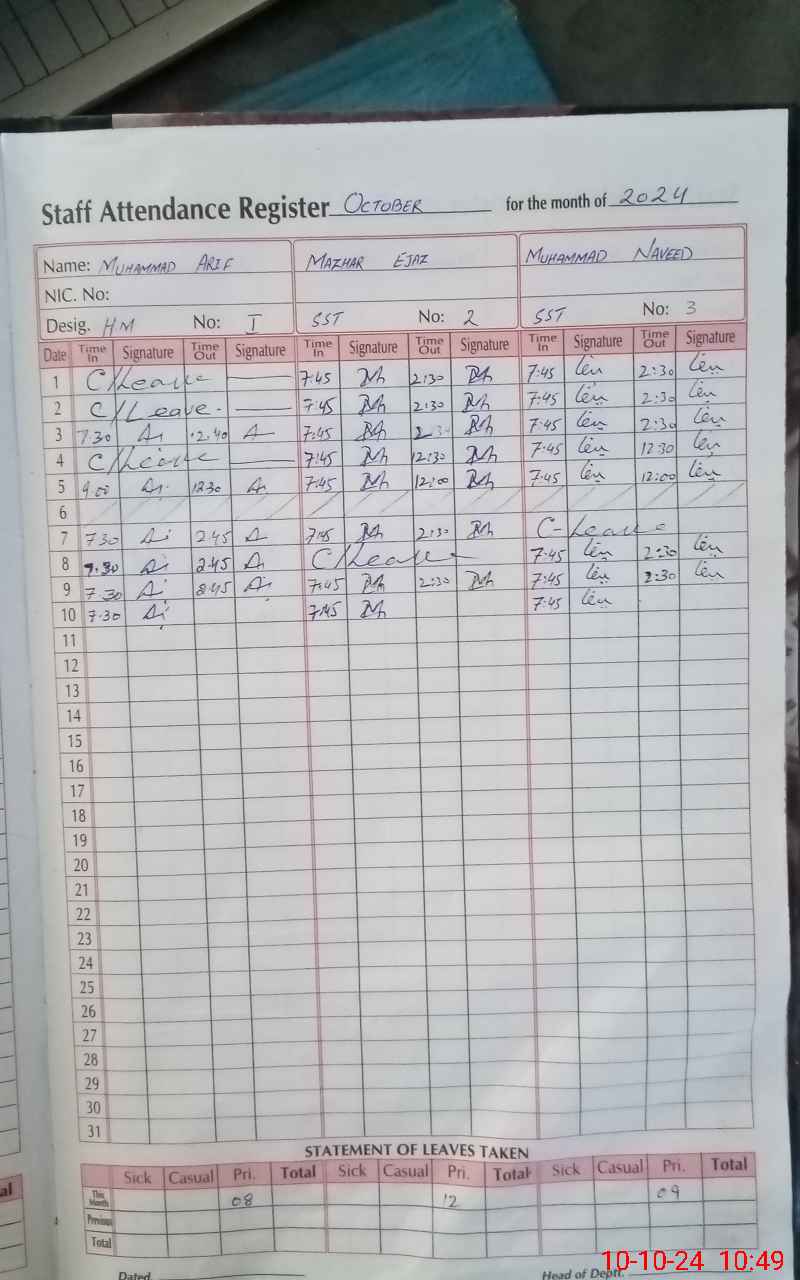 Staff Attendance Register OCTOBER for the month of 2024
Name: MUHAMMAD ARIF MAZHAR EJAZ MUHAMMAD NAVEED
NIC. No:
Desig. HM No: I SST No: 2 SST No: 3
Date Time In Signature Time Out Signature Time In Signature Time Out Signature Time In Signature Time Out Signature
1 C/Leave 7:45 2:30 7:45 2:30
2 C/Leave. 7:45 2:30 7:45 2:30
3 7.30 2.40 7:45 2:30 7:45 2:30
4 C/Leave 7:45 12:30 7:45 12:30
5 9.00 1230 7:45 12:00 7:45 12:00
6
7 730 245 7:45 2:30 C-Leave
8 7.30 245 C/Leave 7:45 2:30
9 7.30 245 7:45 2:30 7:45 2:30
10 7.30 7:45 7:45
11
12
13
14
15
16
17
18
19
20
21
22
23
24
25
26
27
28
29
30
31
STATEMENT OF LEAVES TAKEN
Sick Casual Pri. Total Sick Casual Pri. Total Sick Casual Pri. Total
This Month 08 12 09
Previous
Total
Dated. Head of Deptt.
10-10-24 10:49
al